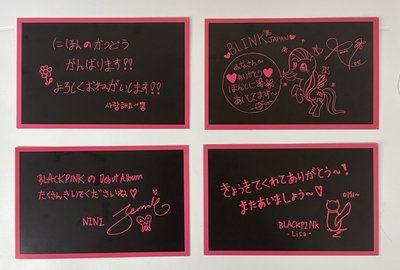 にほんのかつどう
がんばります!!
よろしくおねがいします!!
사랑해요~
BLINK JAPAN
みなさん~
ありがとう
ほんとに
あいしてます~
BLACKPINK の Debut Album
たくさんきいてくださいね♡
NINI
Jennie
きょうきてくれてありがとう~!
またあいましょう~♡
BLACKPINK
-Lisa-